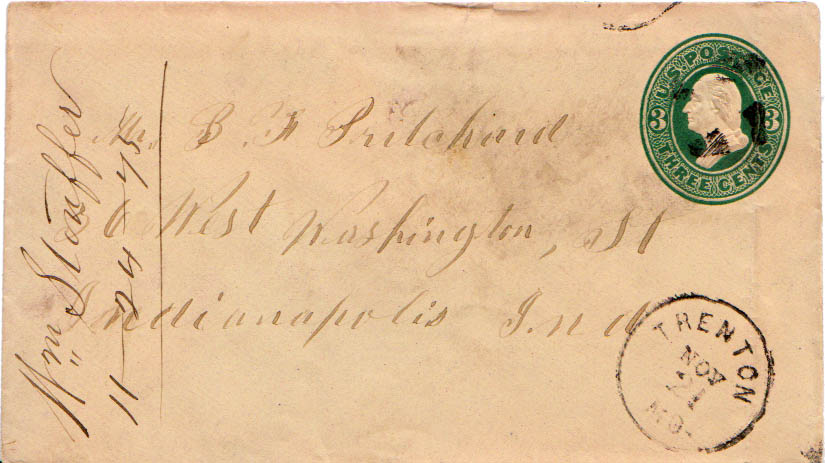 U.S. POSTAGE
3 3
THREE CENTS
Mr. B. F Pritchard
6 West Washington, St
Indianapolis Ind
Wm Stouffer
11-24-75
TRENTON
NOV
21
MO.